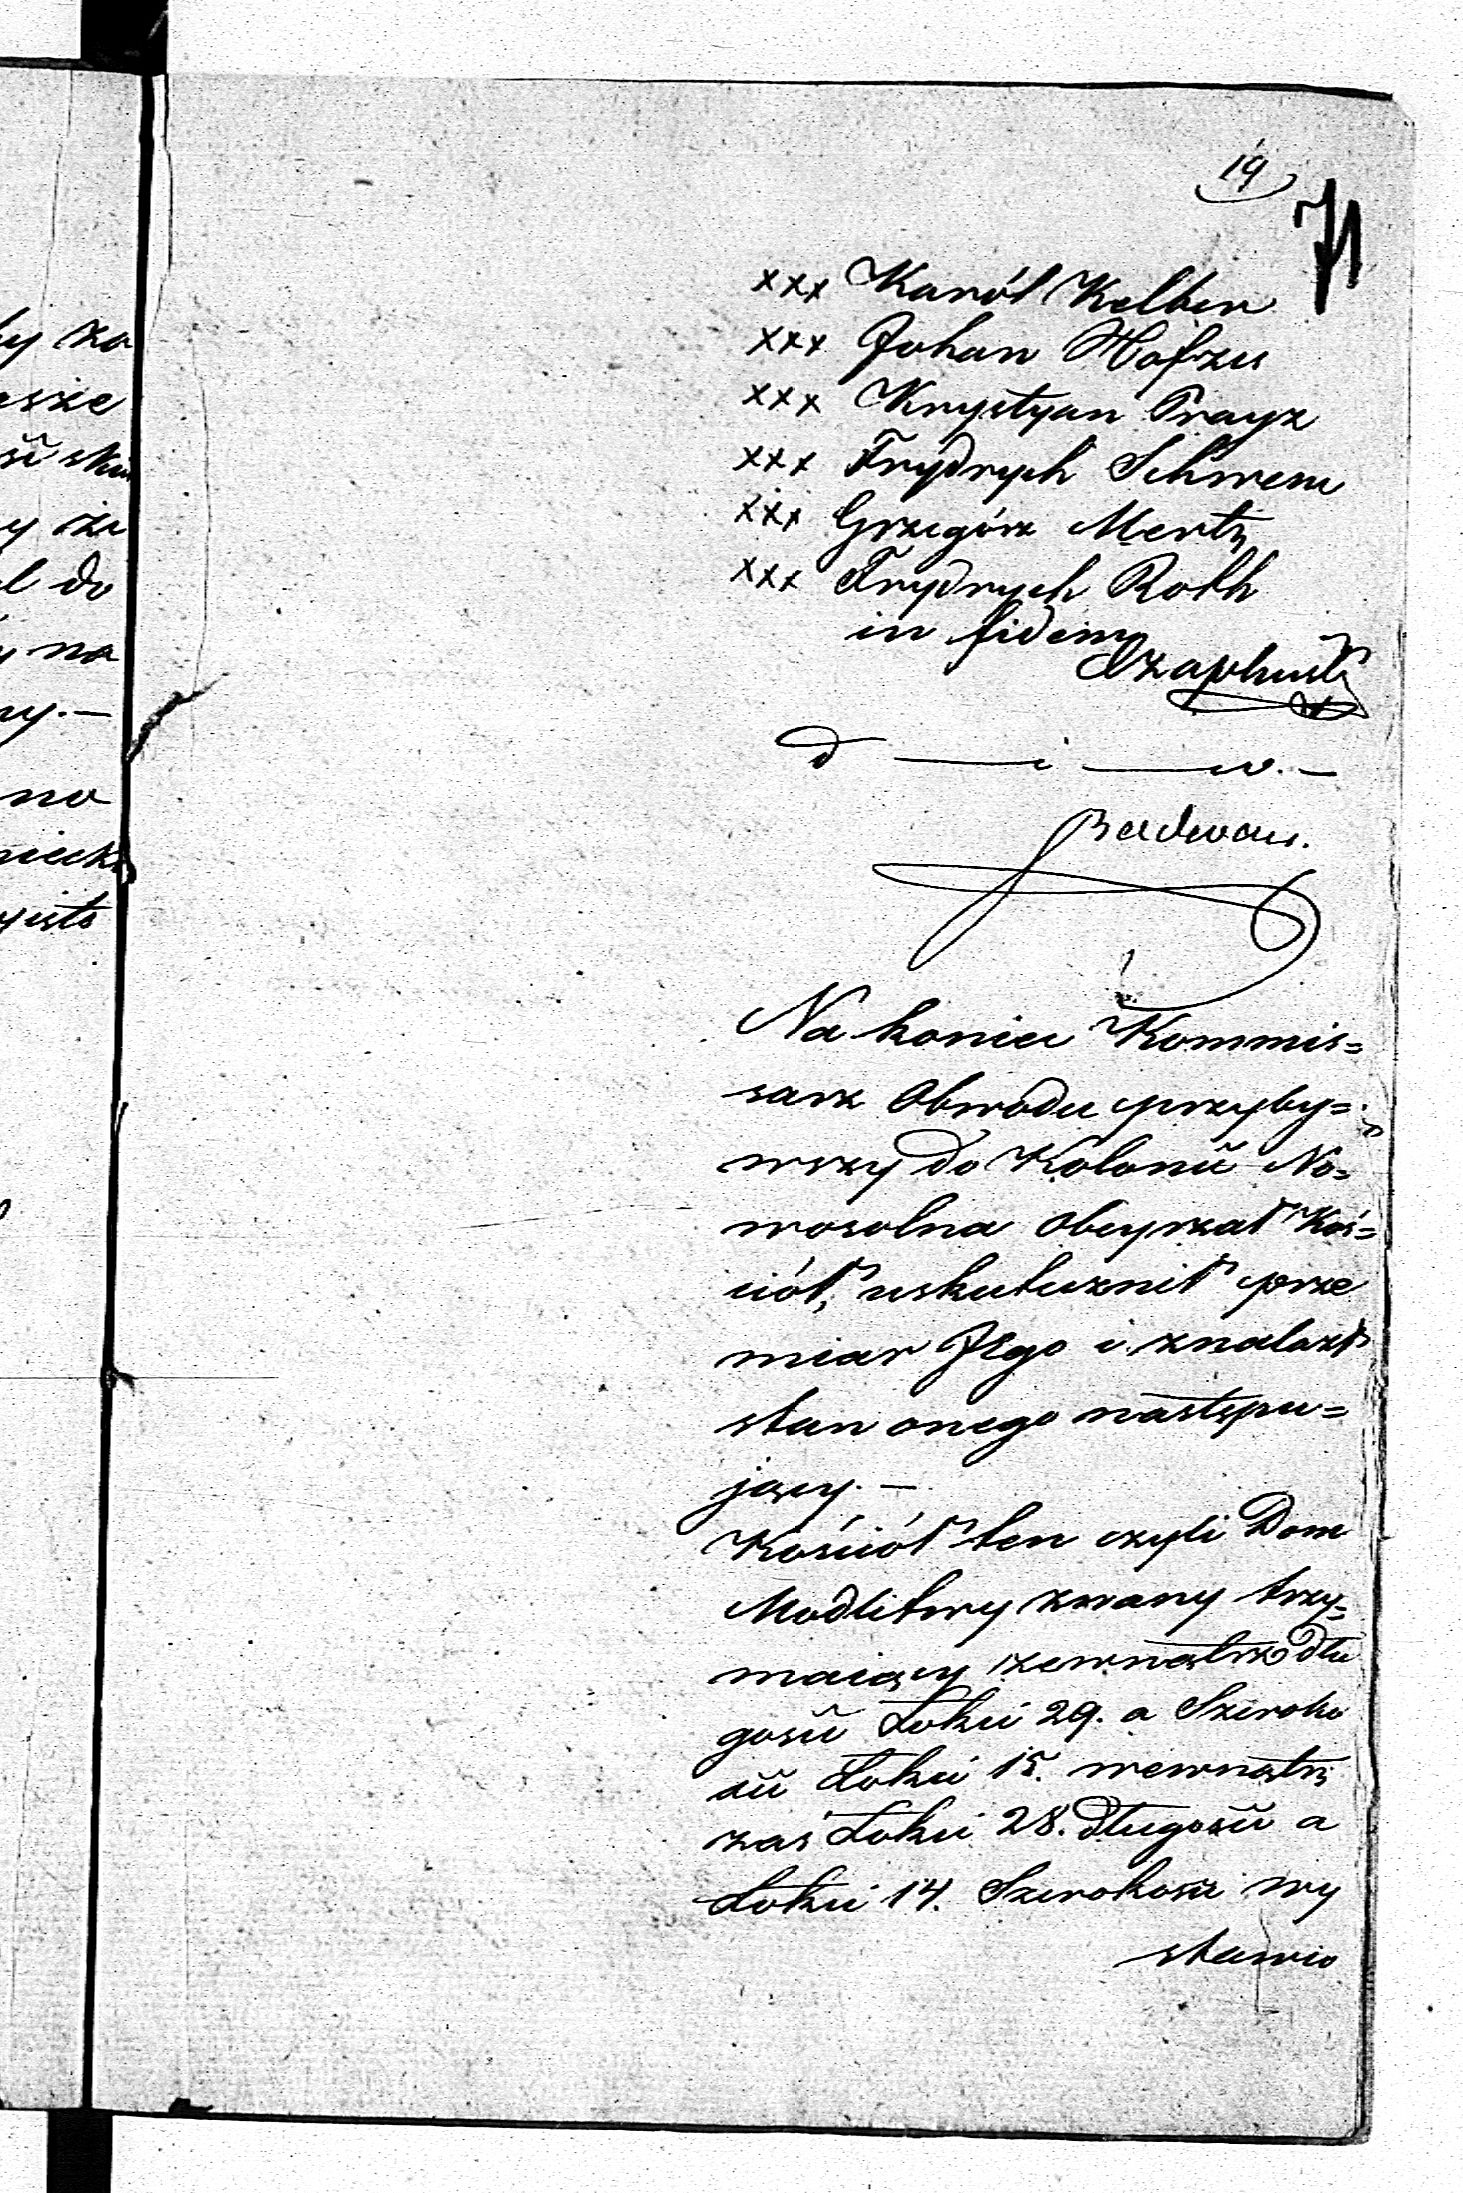 19
71
xxx Karól Kelber
xxx Johan Hofzu
xxx Krystyan Prayz
xxx Frydrych Schwem
xxx Grzegórz Mertz
xxx Frydrych Roth
in fidem
d — i — w. —
Na koniec Kommis=
sarz Obwodu przyby=
wszy do Kolonii No=
wosolna obeyrzał Koś=
ciół, uskutecznił prze
miar Jego i znalazł
stan onego nastepu=
jący. —
Kościół ten czyli Dom
Modlitwy zwany trzy=
maiący zewnątrz dłu
gości Łokci 29. a Szeroko
ści Łokci 15. wewnątrz
zaś Łokci 28. długości a
Łokci 14. Szerokości wy
stawio
by za
asze
ści
y że
l do
y na
ny. —
no